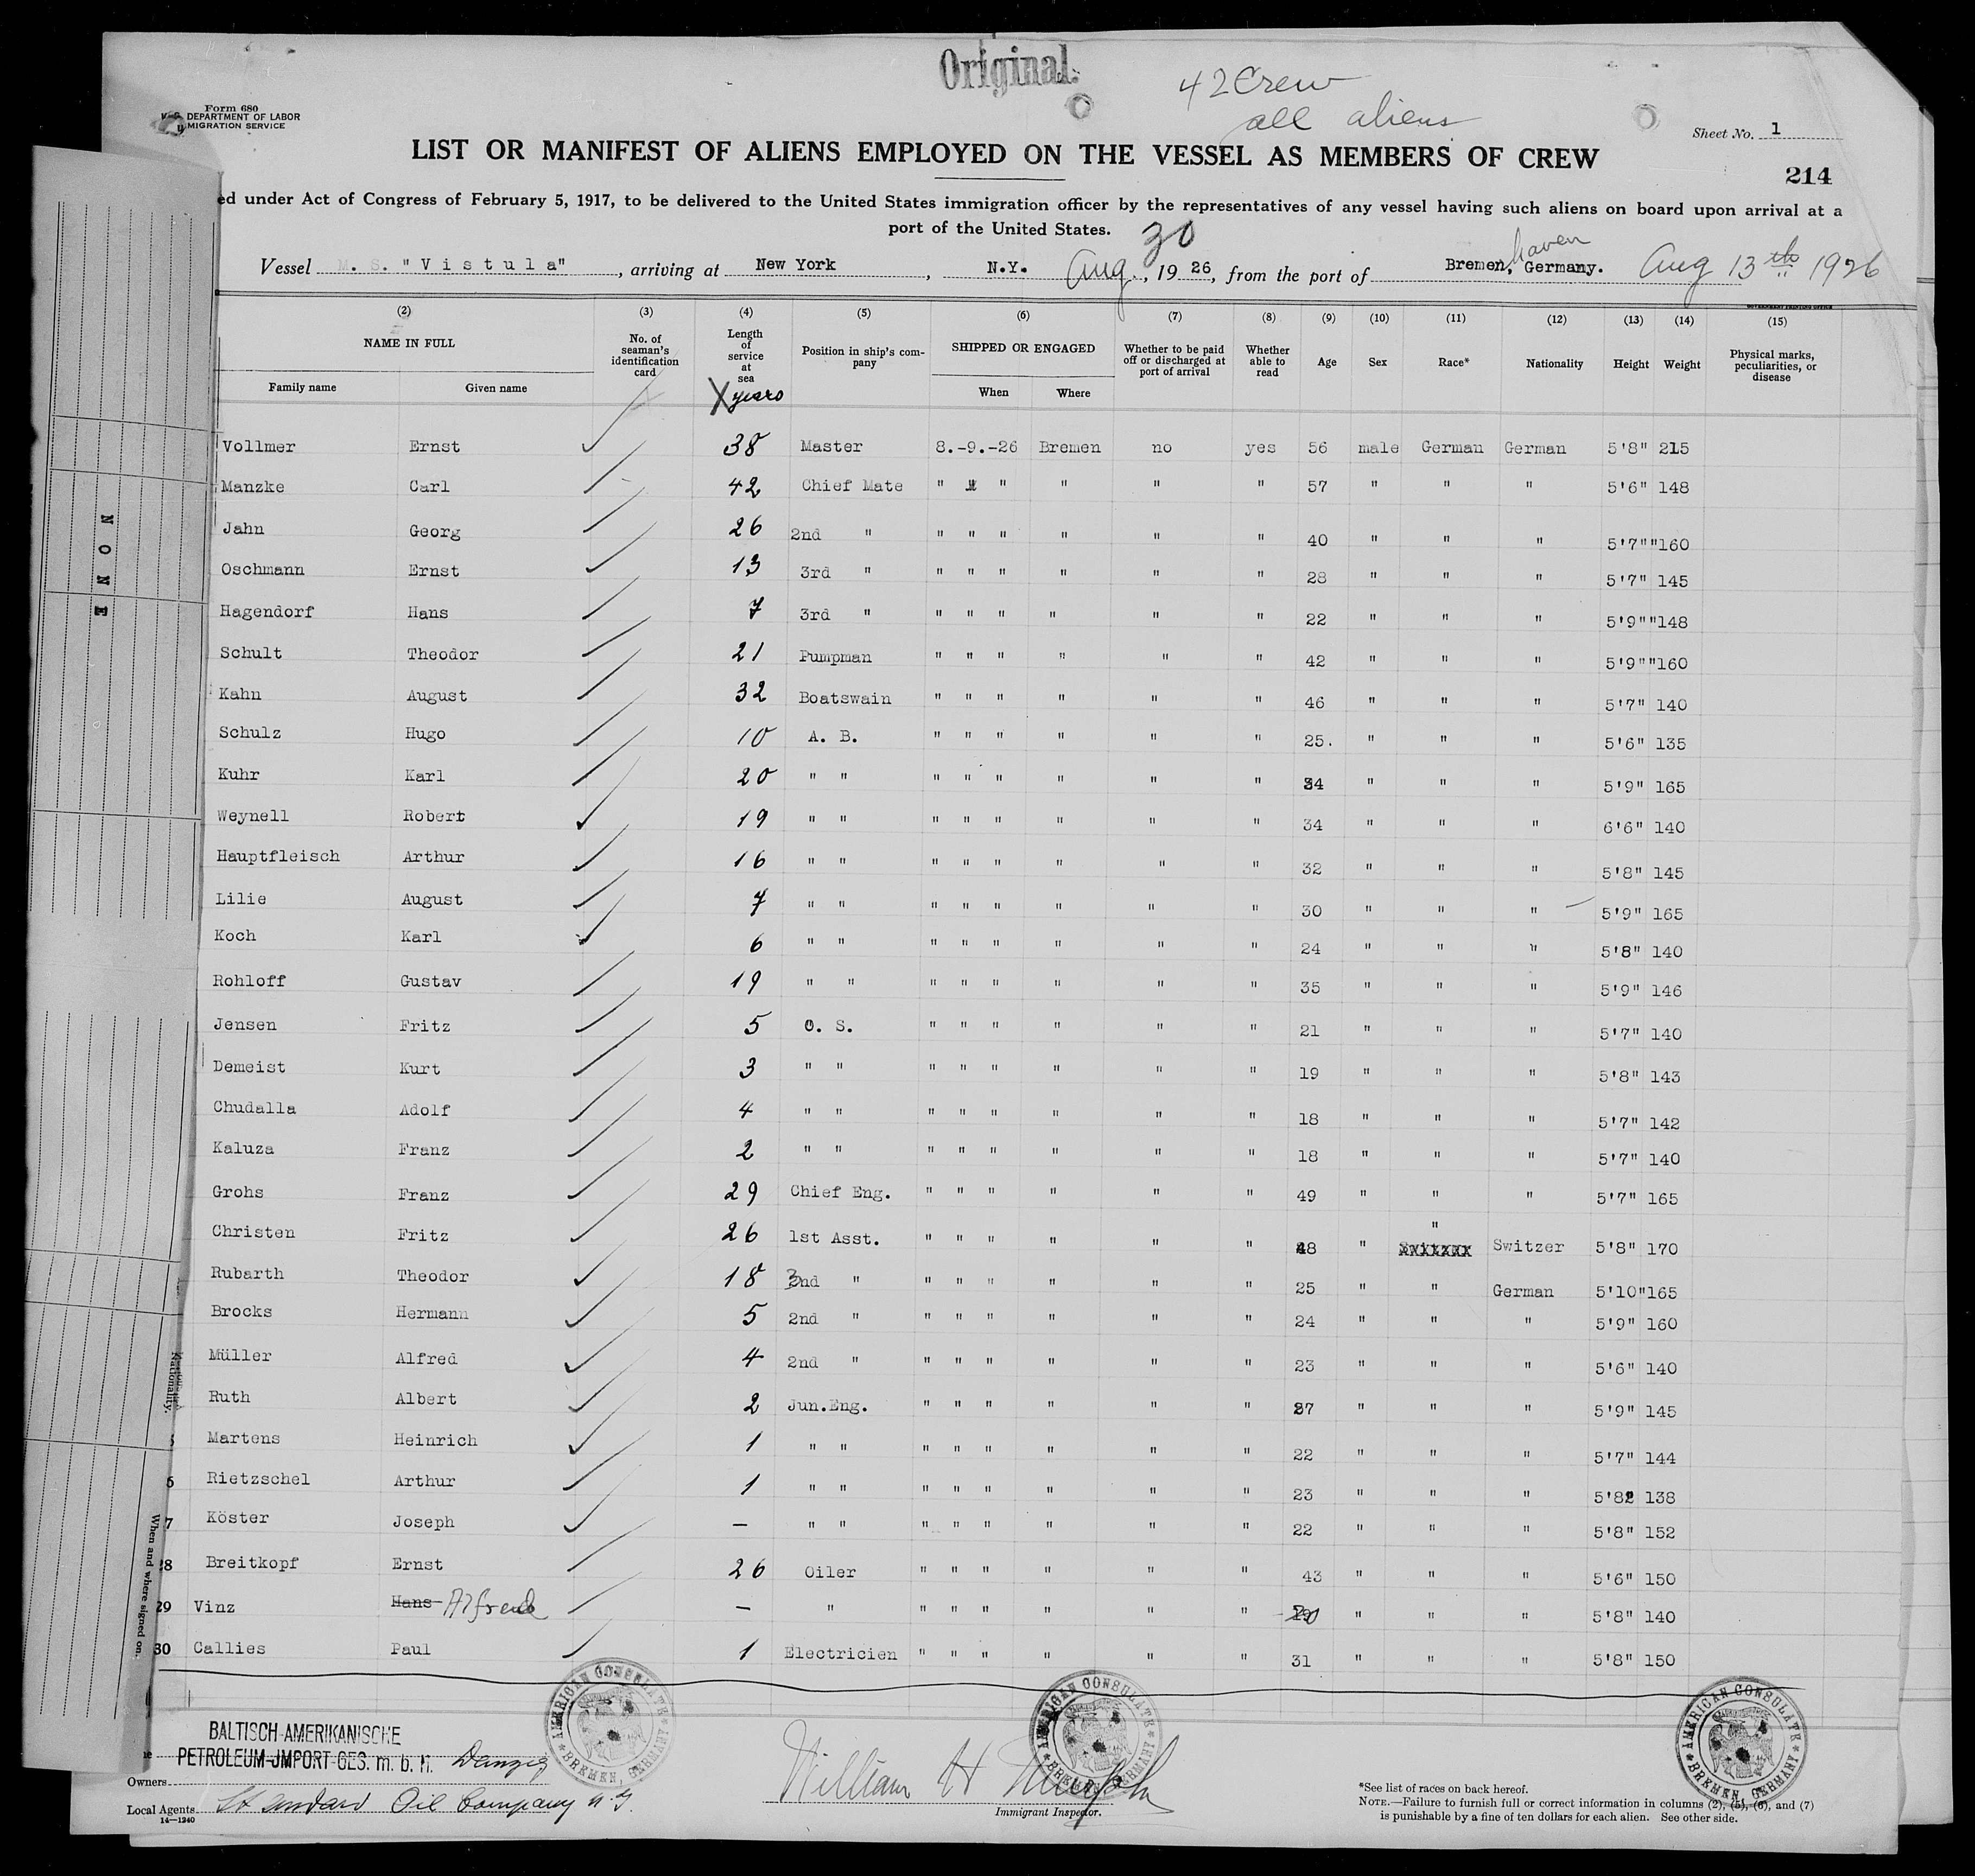 Original.
42 Crew
all aliens
Form 680
U. S. DEPARTMENT OF LABOR
MIGRATION SERVICE
Sheet No. 1
LIST OR MANIFEST OF ALIENS EMPLOYED ON THE VESSEL AS MEMBERS OF CREW
214
ed under Act of Congress of February 5, 1917, to be delivered to the United States immigration officer by the representatives of any vessel having such aliens on board upon arrival at a
port of the United States.
Vessel M. S. "Vistula", arriving at New York, N.Y. Aug. 30, 1926, from the port of Bremenhaven, Germany. Aug 13th 1926
(2) (3) (4) (5) (6) (7) (8) (9) (10) (11) (12) (13) (14) (15)
NAME IN FULL No. of seaman's identification card Length of service at sea Position in ship's company SHIPPED OR ENGAGED Whether to be paid off or discharged at port of arrival Whether able to read Age Sex Race* Nationality Height Weight Physical marks, peculiarities, or disease
Family name Given name X years When Where
Vollmer Ernst 38 Master 8.-9.-26 Bremen no yes 56 male German German 5'8" 215
Manzke Carl 42 Chief Mate " " " " " " 57 " " " 5'6" 148
Jahn Georg 26 2nd " " " " " " " 40 " " " 5'7"" 160
Oschmann Ernst 13 3rd " " " " " " " 28 " " " 5'7" 145
Hagendorf Hans 7 3rd " " " " " " " 22 " " " 5'9"" 148
Schult Theodor 21 Pumpman " " " " " " 42 " " " 5'9"" 160
Kahn August 32 Boatswain " " " " " " 46 " " " 5'7" 140
Schulz Hugo 10 A. B. " " " " " " 25. " " " 5'6" 135
Kuhr Karl 20 " " " " " " " " 34 " " " 5'9" 165
Weynell Robert 19 " " " " " " " " 34 " " " 6'6" 140
Hauptfleisch Arthur 16 " " " " " " " " 32 " " " 5'8" 145
Lilie August 7 " " " " " " " " 30 " " " 5'9" 165
Koch Karl 6 " " " " " " " " 24 " " " 5'8" 140
Rohloff Gustav 19 " " " " " " " " 35 " " " 5'9" 146
Jensen Fritz 5 O. S. " " " " " " 21 " " " 5'7" 140
Demeist Kurt 3 " " " " " " " " 19 " " " 5'8" 143
Chudalla Adolf 4 " " " " " " " " 18 " " " 5'7" 142
Kaluza Franz 2 " " " " " " " " 18 " " " 5'7" 140
Grohs Franz 29 Chief Eng. " " " " " " 49 " " " 5'7" 165
Christen Fritz 26 1st Asst. " " " " " " 48 " " Switzer 5'8" 170
Rubarth Theodor 18 2nd " " " " " " " 25 " " German 5'10" 165
Brocks Hermann 5 2nd " " " " " " " 24 " " " 5'9" 160
Müller Alfred 4 2nd " " " " " " " 23 " " " 5'6" 140
Ruth Albert 2 Jun.Eng. " " " " " " 27 " " " 5'9" 145
Martens Heinrich 1 " " " " " " " " 22 " " " 5'7" 144
6 Rietzschel Arthur 1 " " " " " " " " 23 " " " 5'8" 138
7 Köster Joseph — " " " " " " " " 22 " " " 5'8" 152
28 Breitkopf Ernst 26 Oiler " " " " " " 43 " " " 5'6" 150
29 Vinz Hans Alfred — " " " " " " " 20 " " " 5'8" 140
30 Callies Paul 1 Electricien " " " " " " 31 " " " 5'8" 150
NONE
Nationality.
When and where signed on.
BALTISCH-AMERIKANISCHE
PETROLEUM-JMPORT-GES. m. b. H. Danzig
Owners
Local Agents Standard Oil Company N.J.
14—1240
William H
Immigrant Inspector.
AMERICAN CONSULATE BREMEN, GERMANY
AMERICAN CONSULATE BREMEN, GERMANY
AMERICAN CONSULATE BREMEN, GERMANY
*See list of races on back hereof.
NOTE.—Failure to furnish full or correct information in columns (2), (5), (6), and (7)
is punishable by a fine of ten dollars for each alien. See other side.